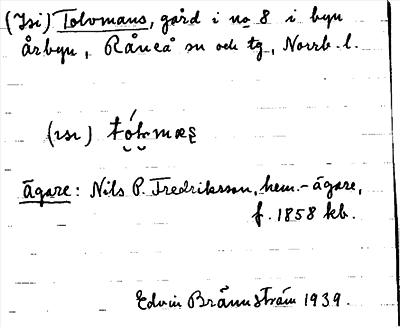 (Isi) Tolvmans, gård i no 8 i byn
Årbyn, Råneå sn och tg, Norrb. l.
(ɪsɪ)
Ägare: Nils P. Fredriksson, hem.-ägare,
f. 1858 kb.
Edvin Brännström 1939.